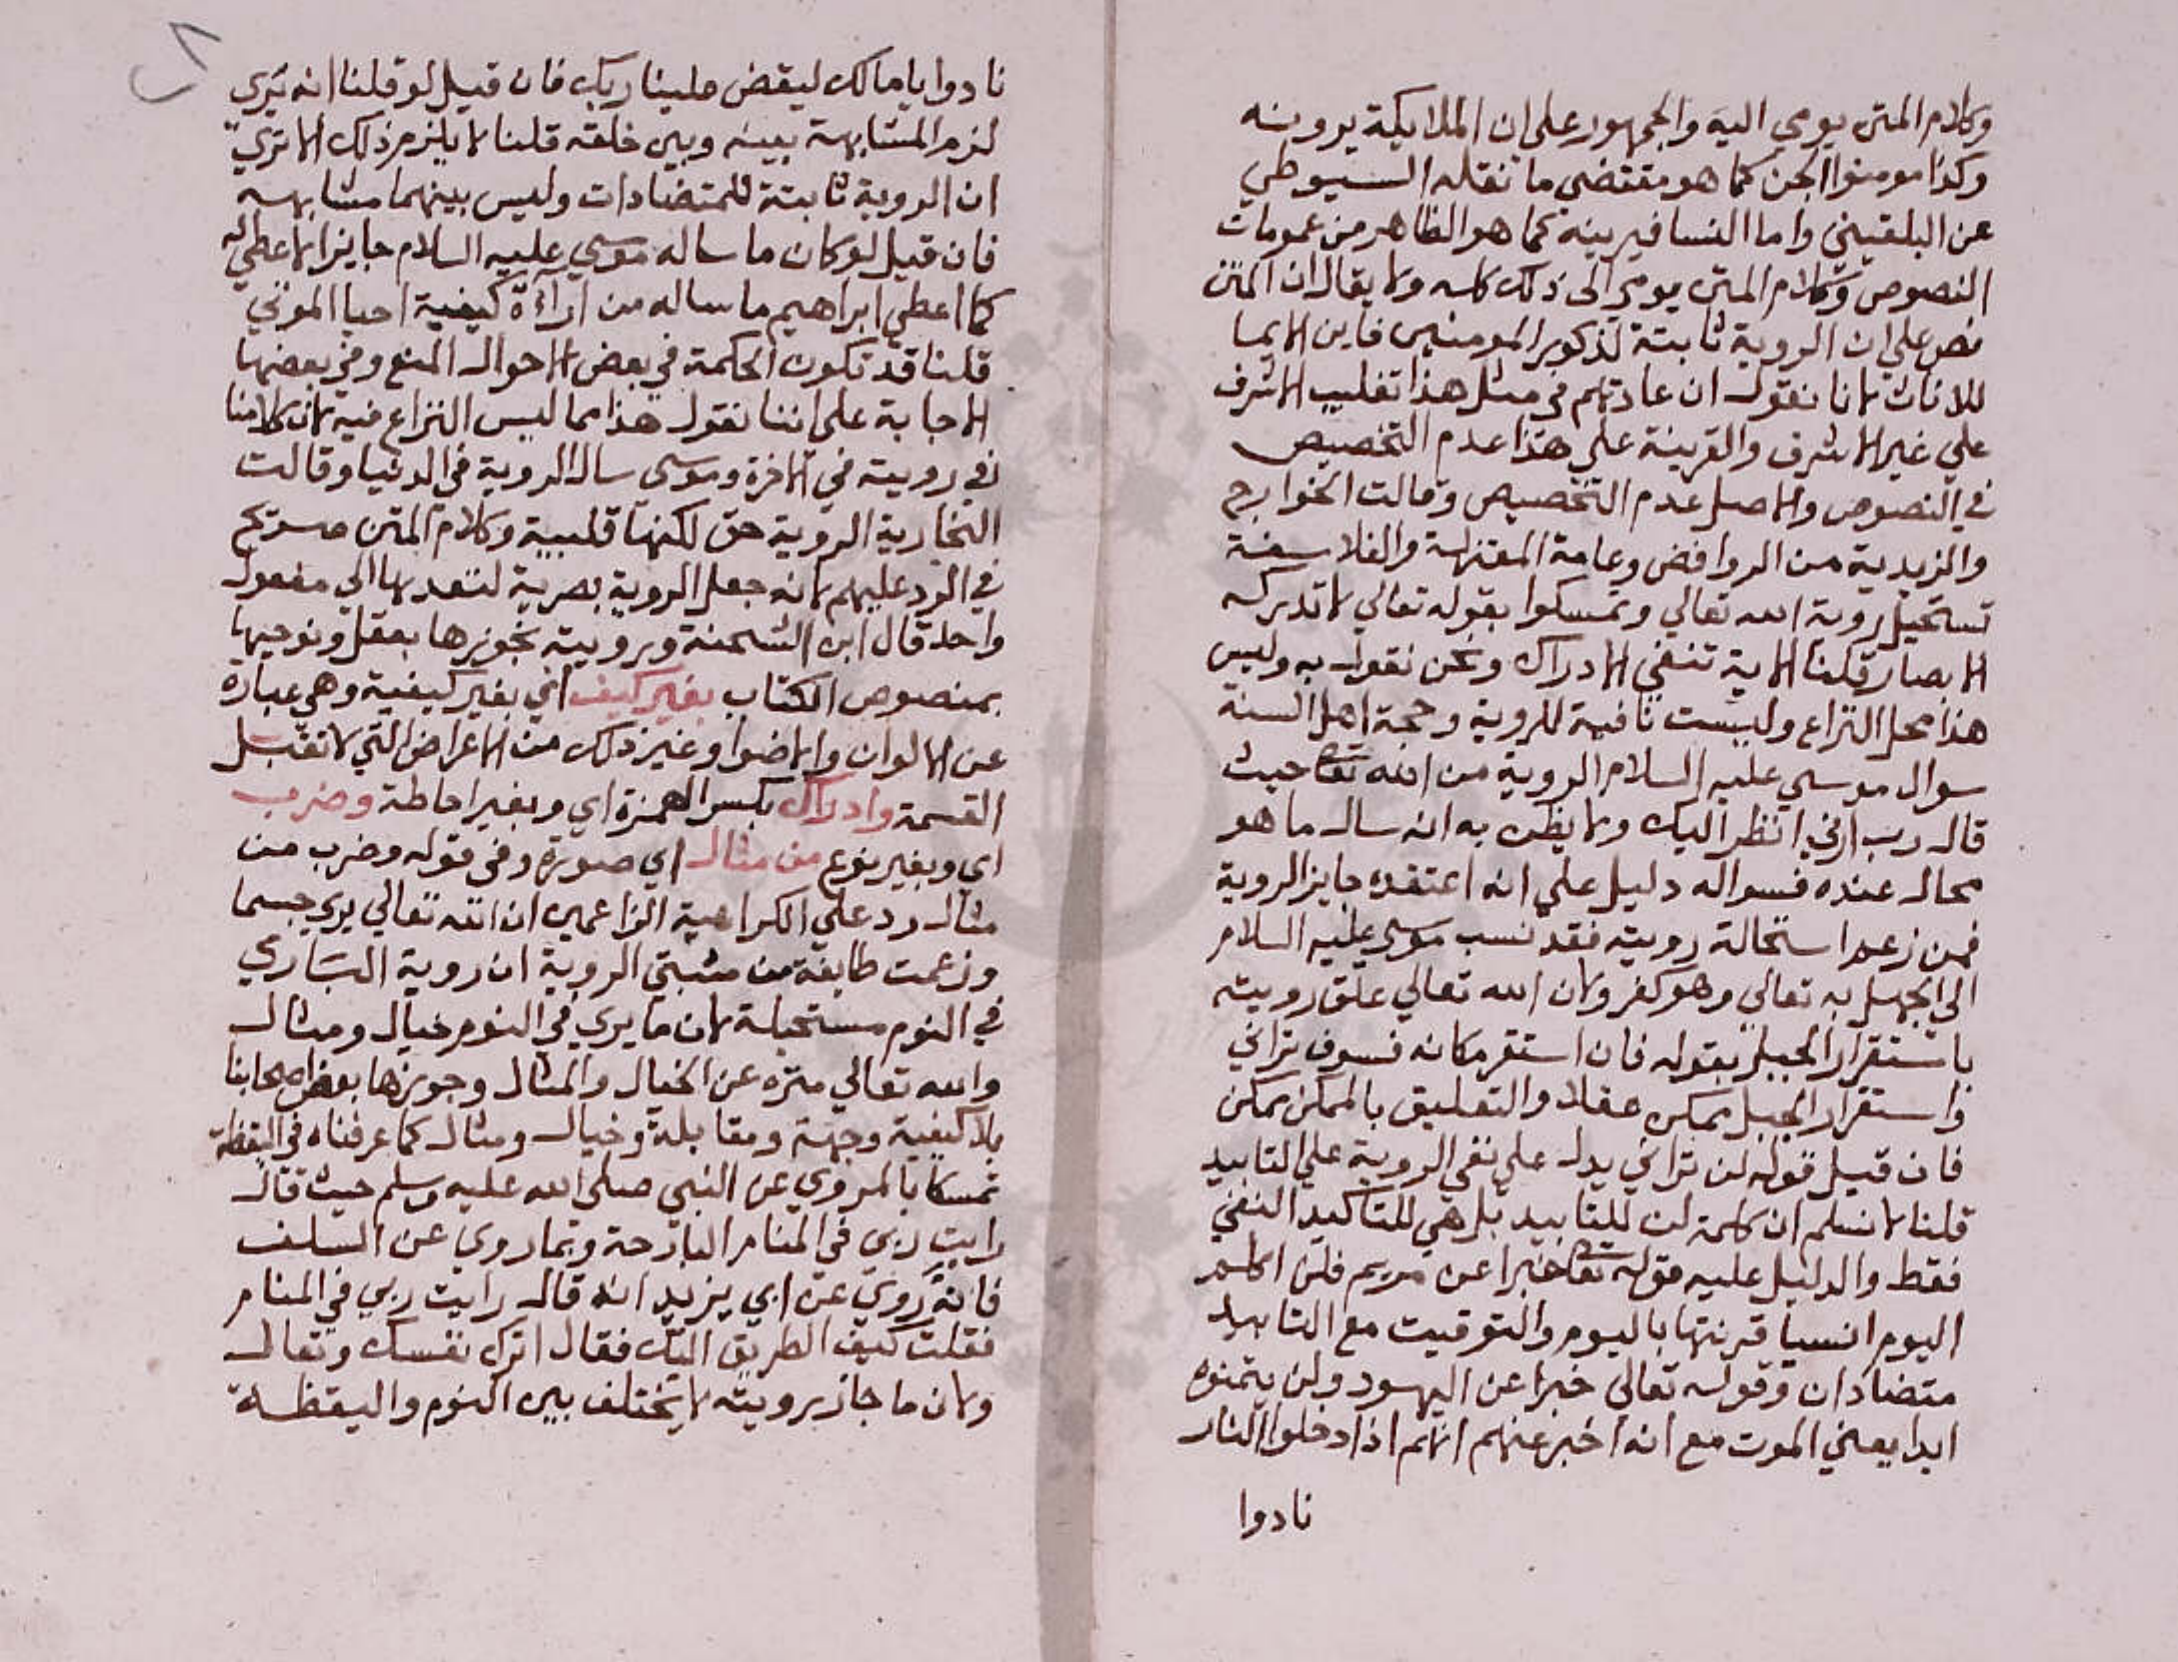 وكلام المتن يومي اليه والجمهور على ان الملايكة يرونه
وكذا مومنوا الجن كما هو مقتضى ما نقله السيوطي
عن البلقيني واما النسا فيرينه كما هو الظاهر من عمومات
النصوص وكلام المتن يومي الى ذلك كله ولا يقال ان المتن
نص على ان الروية ثابتة لذكور المومنين فاين الايما
للاناث لانا نقول ان عادتهم في مثل هذا تغليب الاشرف
علي غير الاشرف والقرينة علي هذا عدم التخصيص
في النصوص والاصل عدم التخصيص وقالت الخوارج
والزيدية من الروافض وعامة المعتزلة والفلاسفة
تستحيل روية الله تعالي وتمسكوا بقوله تعالي لا تدركه
الابصار قلنا الاية تنفي الادراك ونحن نقول به وليس
هذا محل النزاع وليست نافية للروية وحجة اهل السنة
سوال موسي عليه السلام الروية من الله تعا حيث
قال رب ارني انظر اليك ولا يظن به انه سال ما هو
محال عنده فسواله دليل علي انه اعتقده جايز الروية
فمن زعم استحالة رويته فقد نسب موسي عليه السلام
الي الجهل به تعالي وهو كفر ولان الله تعالي علق رويته
باستقرار الجبل بقوله فان استقر مكانه فسوف تراني
واستقرار الجبل ممكن عقلا والتعليق بالممكن ممكن
فان قيل قوله لن تراني يدل علي نفي الروية علي التابيد
قلنا لا نسلم ان كلمة لن للتابيد بل هي للتاكيد النفي
فقط والدليل عليه قوله تعا خبرا عن مريم فلن اكلم
اليوم انسيا قرنتها باليوم والتوقيت مع التابيد
متضادان وقوله تعالى خبرا عن اليهود ولن يتمنوه
ابدا يعني الموت مع انه اخبر عنهم انهم اذا دخلوا النار
نادوا
نادوا يا مالك ليقض علينا ربك فان قيل لو قلنا انه يري
لزم المشابهة بينه وبين خلقه قلنا لا يلزم ذلك الا تري
ان الروية ثابتة للمتضادات وليس بينهما مشابهه
فان قيل لو كان ما ساله موسي عليه السلام جايزا لاعطي له
كما اعطي ابراهيم ما ساله من اراءة كيفية احيا الموتي
قلنا قد تكون الحكمة في بعض الاحوال المنع وفي بعضها
الاجابة على اننا نقول هذا مما ليس النزاع فيه لان كلامنا
في رويته في الاخرة وموسى سال الروية في الدنيا وقالت
النجارية الروية حق لكنها قلبية وكلام المتن صريح
في الرد عليهم لانه جعل الروية بصرية لتعديها الي مفعول
واحد قال ابن الشحنة ورويته نجوزها بعقل ونوجبها
بمنصوص الكتاب بغير كيف اي بغير كيفية وهي عبارة
عن الالوان والاضوا وغير ذلك من الاعراض التي لا تقبل
القسمة وادراك بكسر الهمزة اي وبغير احاطة وضرب
اي وبغير نوع من مثال اي صورة وفي قوله وضرب من
مثال رد علي الكرامية الزاعمين ان الله تعالي يري جسما
وزعمت طايفة من مثبتي الروية ان روية الباري
في النوم مستحيلة لان ما يري في النوم خيال ومثال
والله تعالي منزه عن الخيال والمثال وجوزها بعض اصحابنا
بلا كيفية وجهة ومقابلة وخيال ومثال كما عرفناه في اليقظة
تمسكا بالمروي عن النبي صلى الله عليه وسلم حيث قال
رايت ربي في المنام البارحة وبما روي عن السلف
فانه روي عن ابي يزيد انه قال رايت ربي في المنام
فقلت كيف الطريق اليك فقال اترك نفسك وتعال
ولان ما جاز برويته لا يختلف بين النوم واليقظة